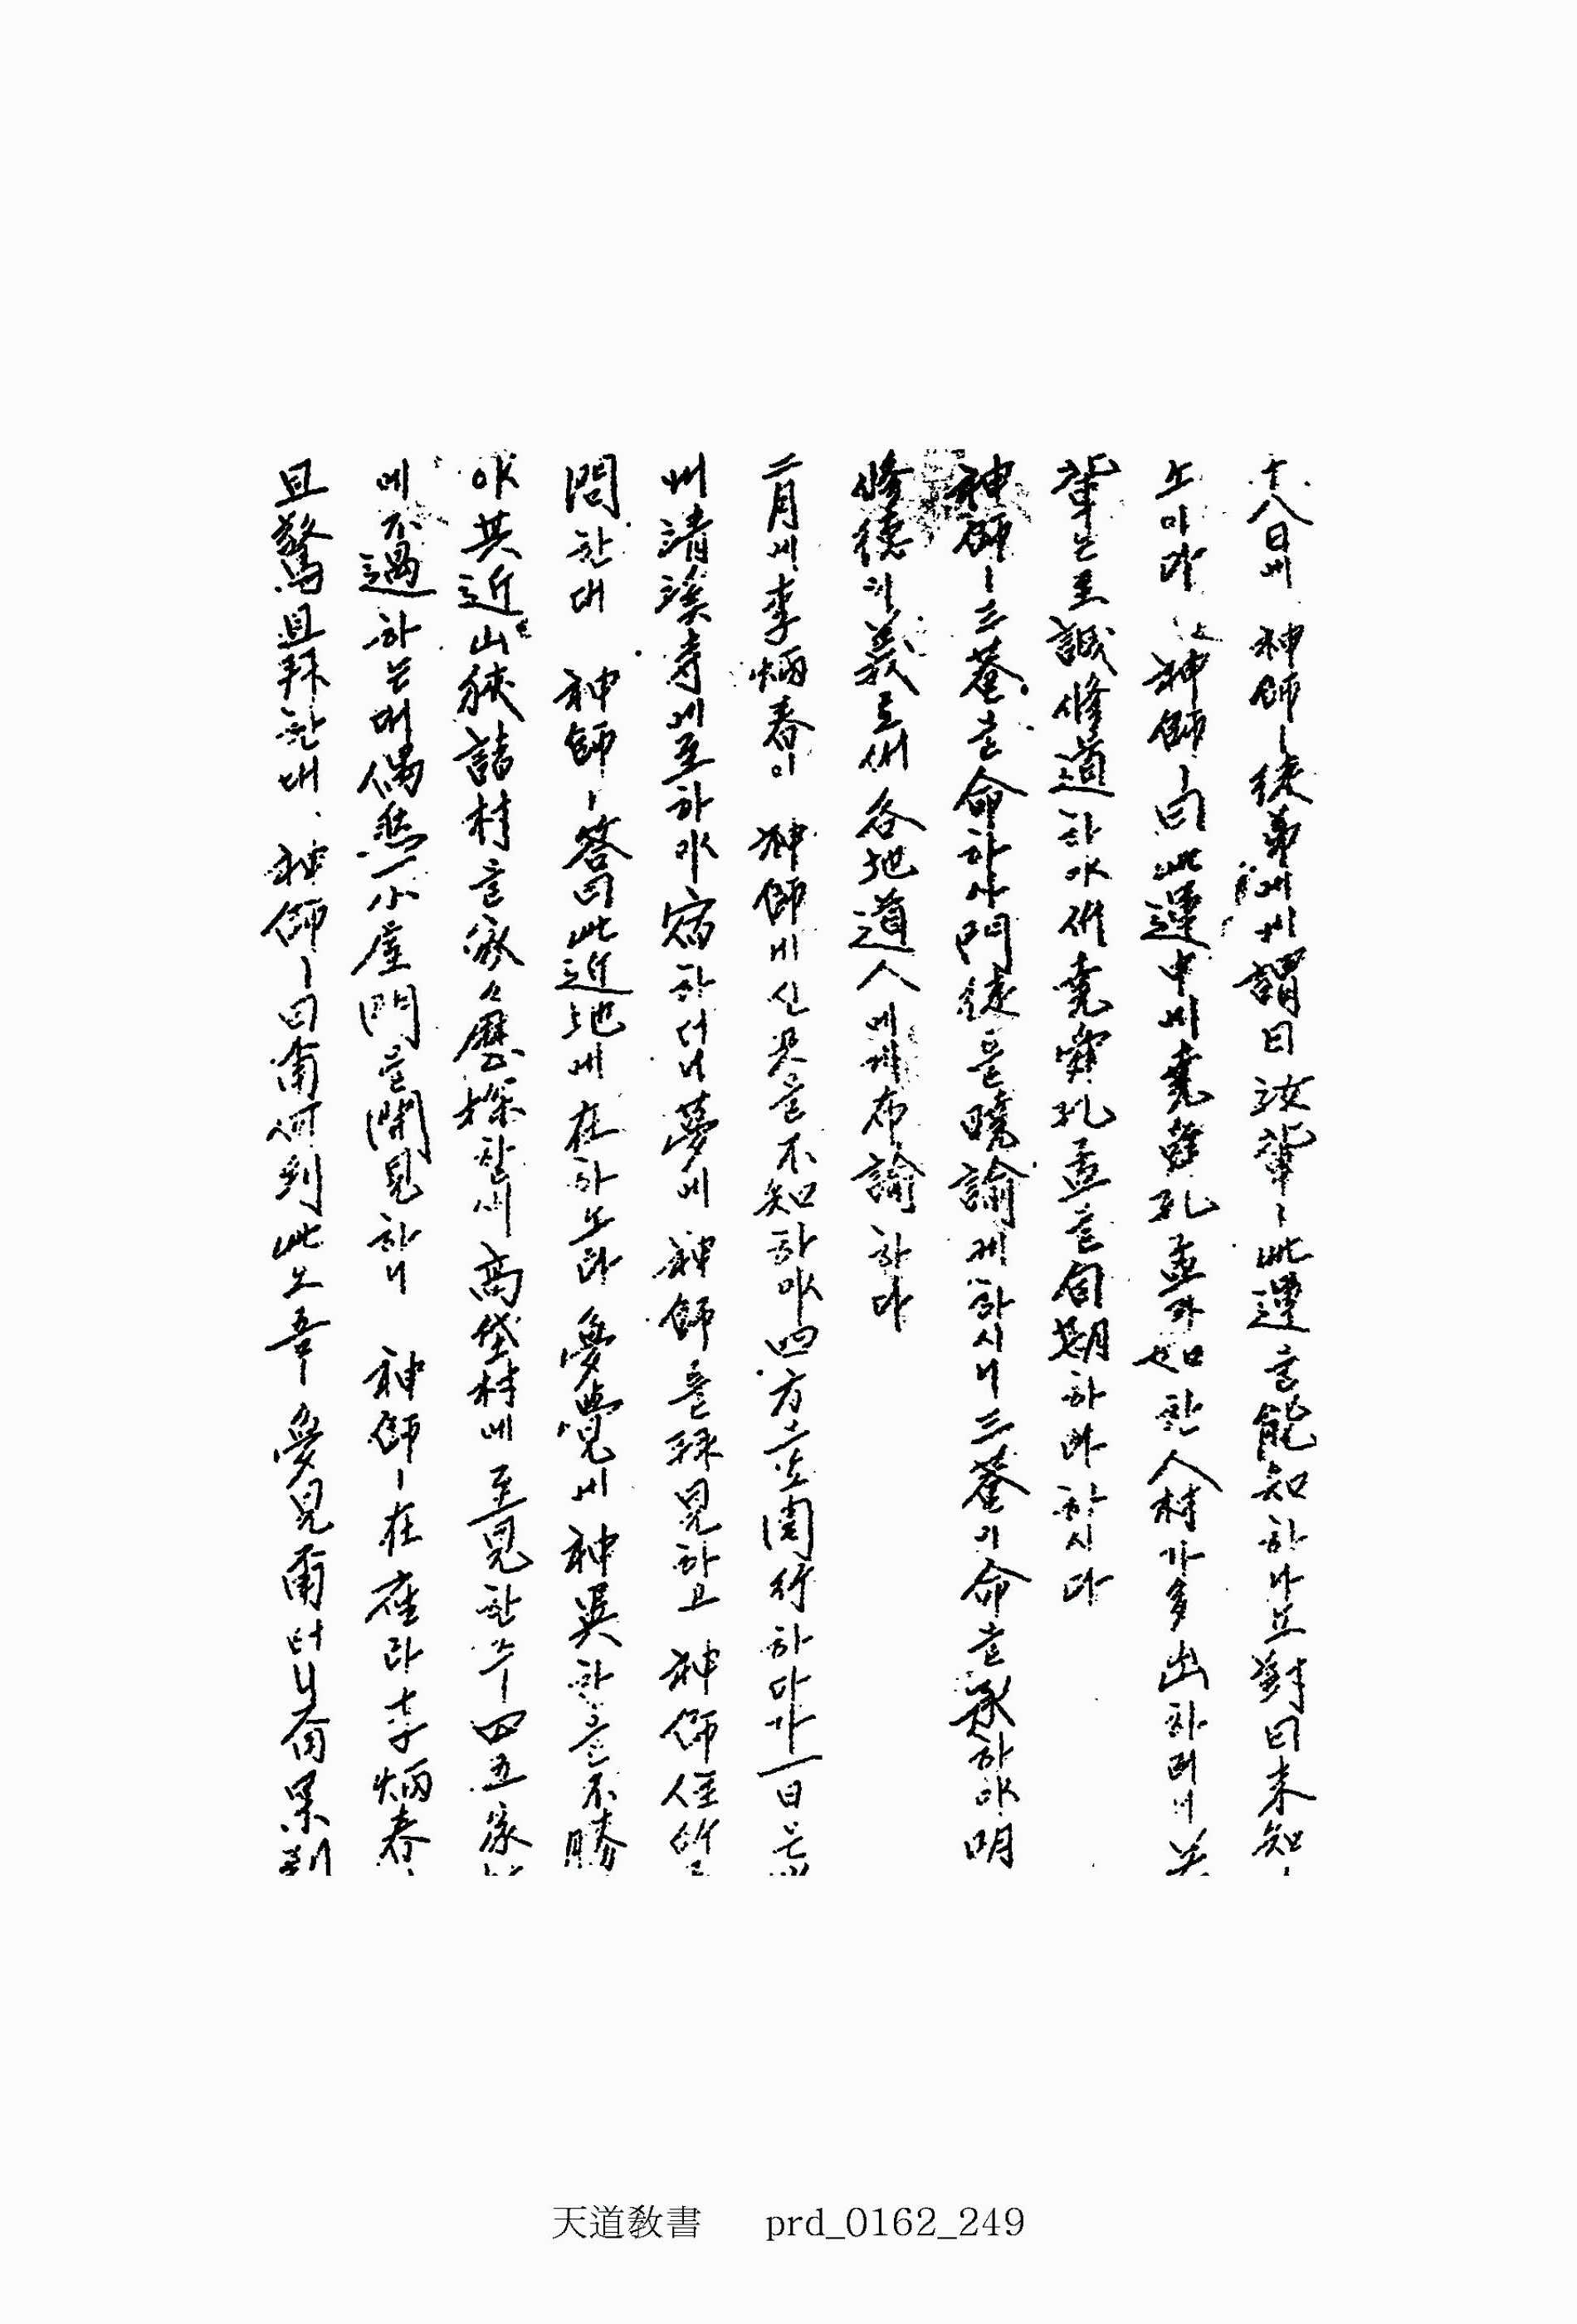 十八日에 神師ㅣ 徒弟에게 謂曰 汝輩ㅣ 此運을 能知하나뇨 對曰 未知
노이다 神師ㅣ 曰 此運中에 堯舜孔孟과 如한 人材가 多出하리니
輩는 至誠修道하야써 堯舜孔孟을 自期하라 하시다
神師ㅣ 三菴을 命하사 門徒를 曉諭케 하시니 三菴이 命을 承하야 明
修德의 義로써 各地道人에게 布諭하다
二月에 李炳春이 神師에 신 곳을 不知하야 四方으로 周行하다가 一日은
州淸溪寺에 至하야 宿하더니 夢에 神師를 拜見하고 神師住所
問한대 神師ㅣ 答曰 此近地에 在하노라 夢覺에 神異함을 不勝
야 其近山峽諸村을 家々歷探할새 高垈村에 至見한 즉 四五家
에 不過하는대 偶然一小屋門을 開見하니 神師ㅣ 在座라 李炳春
且驚且拜한대 神師ㅣ 曰 甭何到此오 吾ㅣ 夢見甭터니 甭果到
天道敎書 prd_0162_249